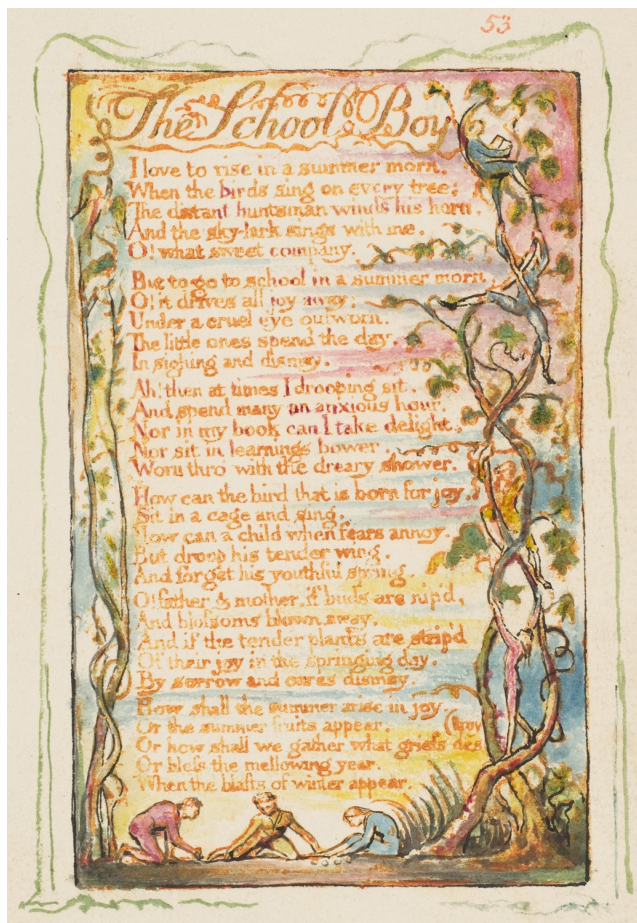 53
The School Boy
I love to rise in a summer morn,
When the birds sing on every tree;
The distant huntsman winds his horn,
And the sky-lark sings with me.
O! what sweet company.
But to go to school in a summer morn
O! it drives all joy away;
Under a cruel eye outworn,
The little ones spend the day,
In sighing and dismay.
Ah! then at times I drooping sit,
And spend many an anxious hour.
Nor in my book can I take delight,
Nor sit in learnings bower,
Worn thro' with the dreary shower.
How can the bird that is born for joy,
Sit in a cage and sing.
How can a child when fears annoy,
But droop his tender wing,
And forget his youthful spring.
O! father & mother, if buds are nip'd,
And blossoms blown away,
And if the tender plants are strip'd
Of their joy in the springing day,
By sorrow and cares dismay,
How shall the summer arise in joy,
Or the summer fruits appear.
(troy
Or how shall we gather what griefs des
Or bless the mellowing year,
When the blasts of winter appear.